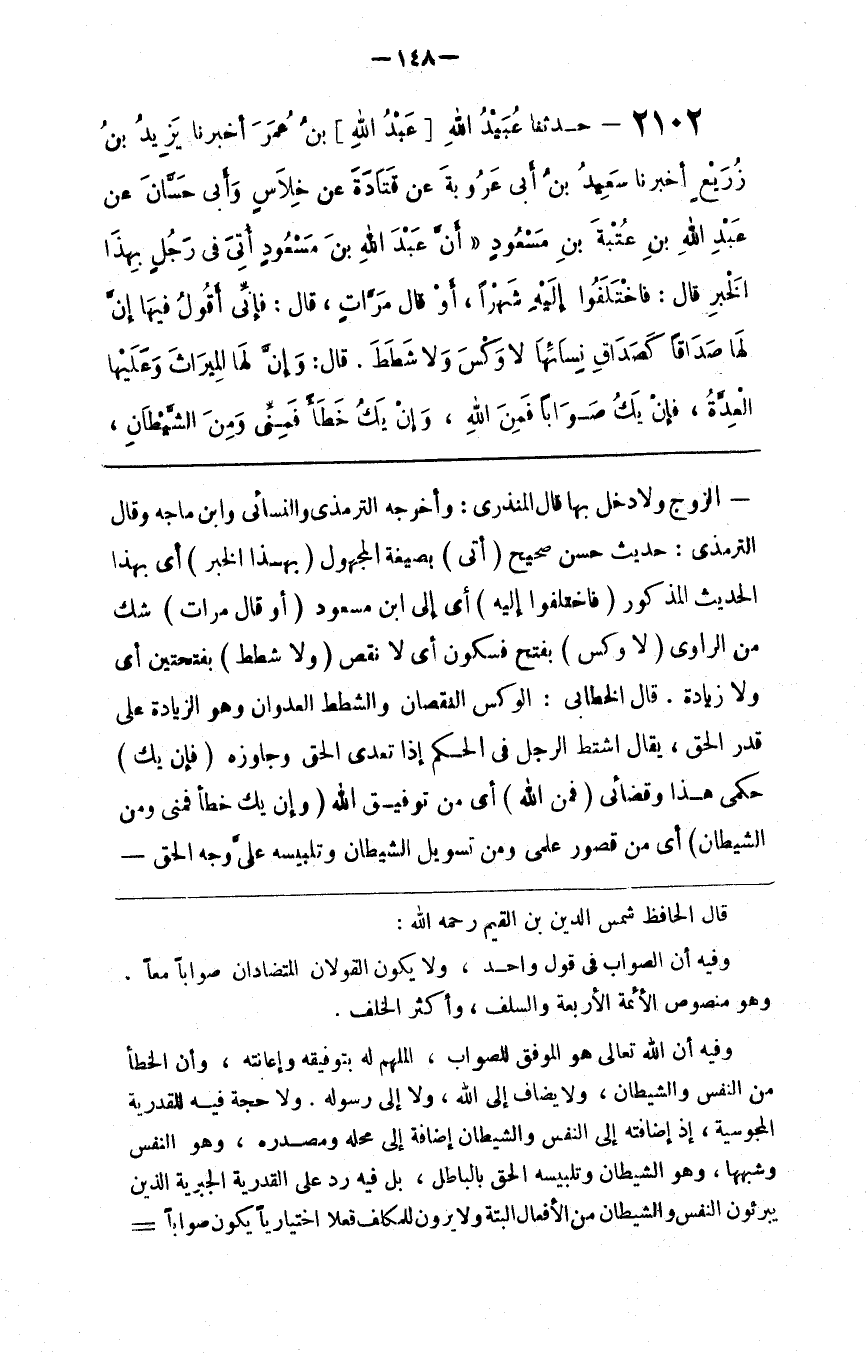 — ١٤٨ —
٢١٠٢ — حـدثنا عُبَيْدُ اللهِ [ عَبْدُ اللهِ ] بنُ عُمَرَ أخبرنا يَزِيدُ بنُ
زُرَيْعٍ أخبرنا سَعِيدُ بنُ أَبى عَرُوبةَ عن قَتَادَةَ عن خِلَاسٍ وَأَبى حَسَّانَ عن
عَبْدِ اللهِ بنِ عُتْبَةَ بنِ مَسْعُودٍ « أَنَّ عَبْدَ اللهِ بنَ مَسْعُودٍ أُتِىَ فى رَجُلٍ بِهذَا
الْخَبرِ قال : فاخْتَلَفُوا إِلَيْهِ شَهْراً ، أَوْ قال مَرَّاتٍ ، قال : فإِنِّى أَقُولُ فيهَا إنَّ
لهَا صَدَاقاً كَصَدَاقِ نِسَائهَا لا وَكْسَ وَلا شَطَطَ . قال: وَإنَّ لهَا المِيرَاثَ وَعَلَيْهَا
الْعِدَّةُ ، فإنْ يَكُ صَـوَاباً فَمِنَ اللهِ ، وَإنْ يَكُ خَطَأً فَمِـنِّى وَمِنَ الشَّيْطَانِ ،
— الزوج ولا دخل بها قال المنذرى : وأخرجه الترمذى والنسائى وابن ماجه وقال
الترمذى : حديث حسن صحيح ( أتى ) بصيغة المجهول ( بهـذا الخبر ) أى بهذا
الحديث المذكور ( فاختلفوا إليه ) أى إلى ابن مسعود ( أو قال مرات ) شك
من الراوى ( لا وكس ) بفتح فسكون أى لا نقص ( ولا شطط ) بفتحتين أى
ولا زيادة . قال الخطابى : الوكس النقصان والشطط العدوان وهو الزيادة على
قدر الحق ، يقال اشتط الرجل فى الحـكم إذا تعدى الحق وجاوزه ( فإن يك )
حكمى هـذا وقضائى ( فمن الله ) أى من توفيـق الله ( وإن يك خطأ فمنى ومن
الشيطان) أى من قصور علمى ومن تسويل الشيطان وتلبيسه علىَّ وجه الحق —
قال الحافظ شمس الدين بن القيم رحمه الله :
وفيه أن الصواب فى قول واحـد ، ولا يكون القولان المتضادان صواباً معاً .
وهو منصوص الأئمة الأربعة والسلف ، وأكثر الخلف .
وفيه أن الله تعالى هو الموفق للصواب ، الملهم له بتوفيقه وإعانته ، وأن الخطأ
من النفس والشيطان ، ولا يضاف إلى الله ، ولا إلى رسوله . ولا حجة فيـه للقدرية
المجوسية ، إذ إضافته إلى النفس والشيطان إضافة إلى محله ومصـدره ، وهو النفس
وشبهها ، وهو الشيطان وتلبيسه الحق بالباطل ، بل فيه رد على القدرية الجبرية الذين
يبرئون النفس والشيطان من الأفعال البتة ولا يرون للمكلف فعلا اختيارياً يكون صواباً =